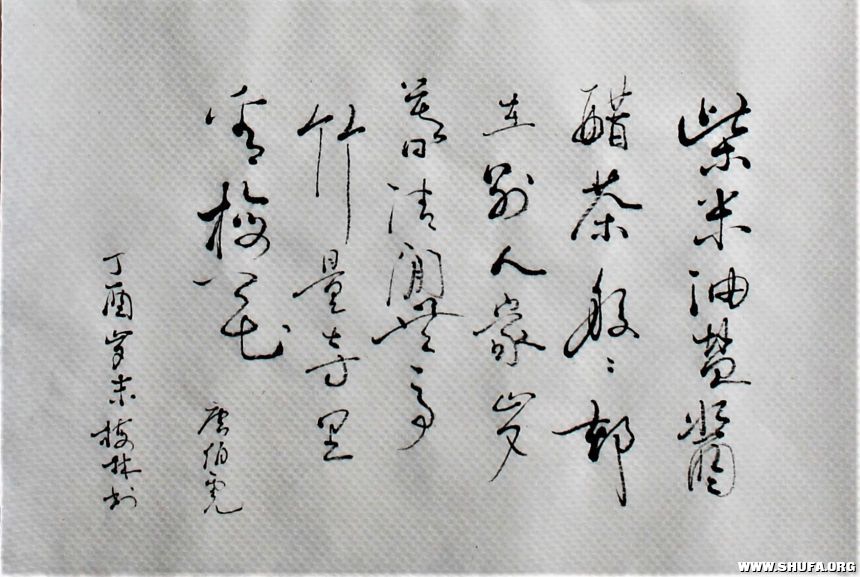 柴米油盐酱
醋茶般々都
在别人家岁
暮清閒無一事
竹寺里
看梅花
唐伯虎
丁酉岁末梅林书
WWW.SHUFA.ORG